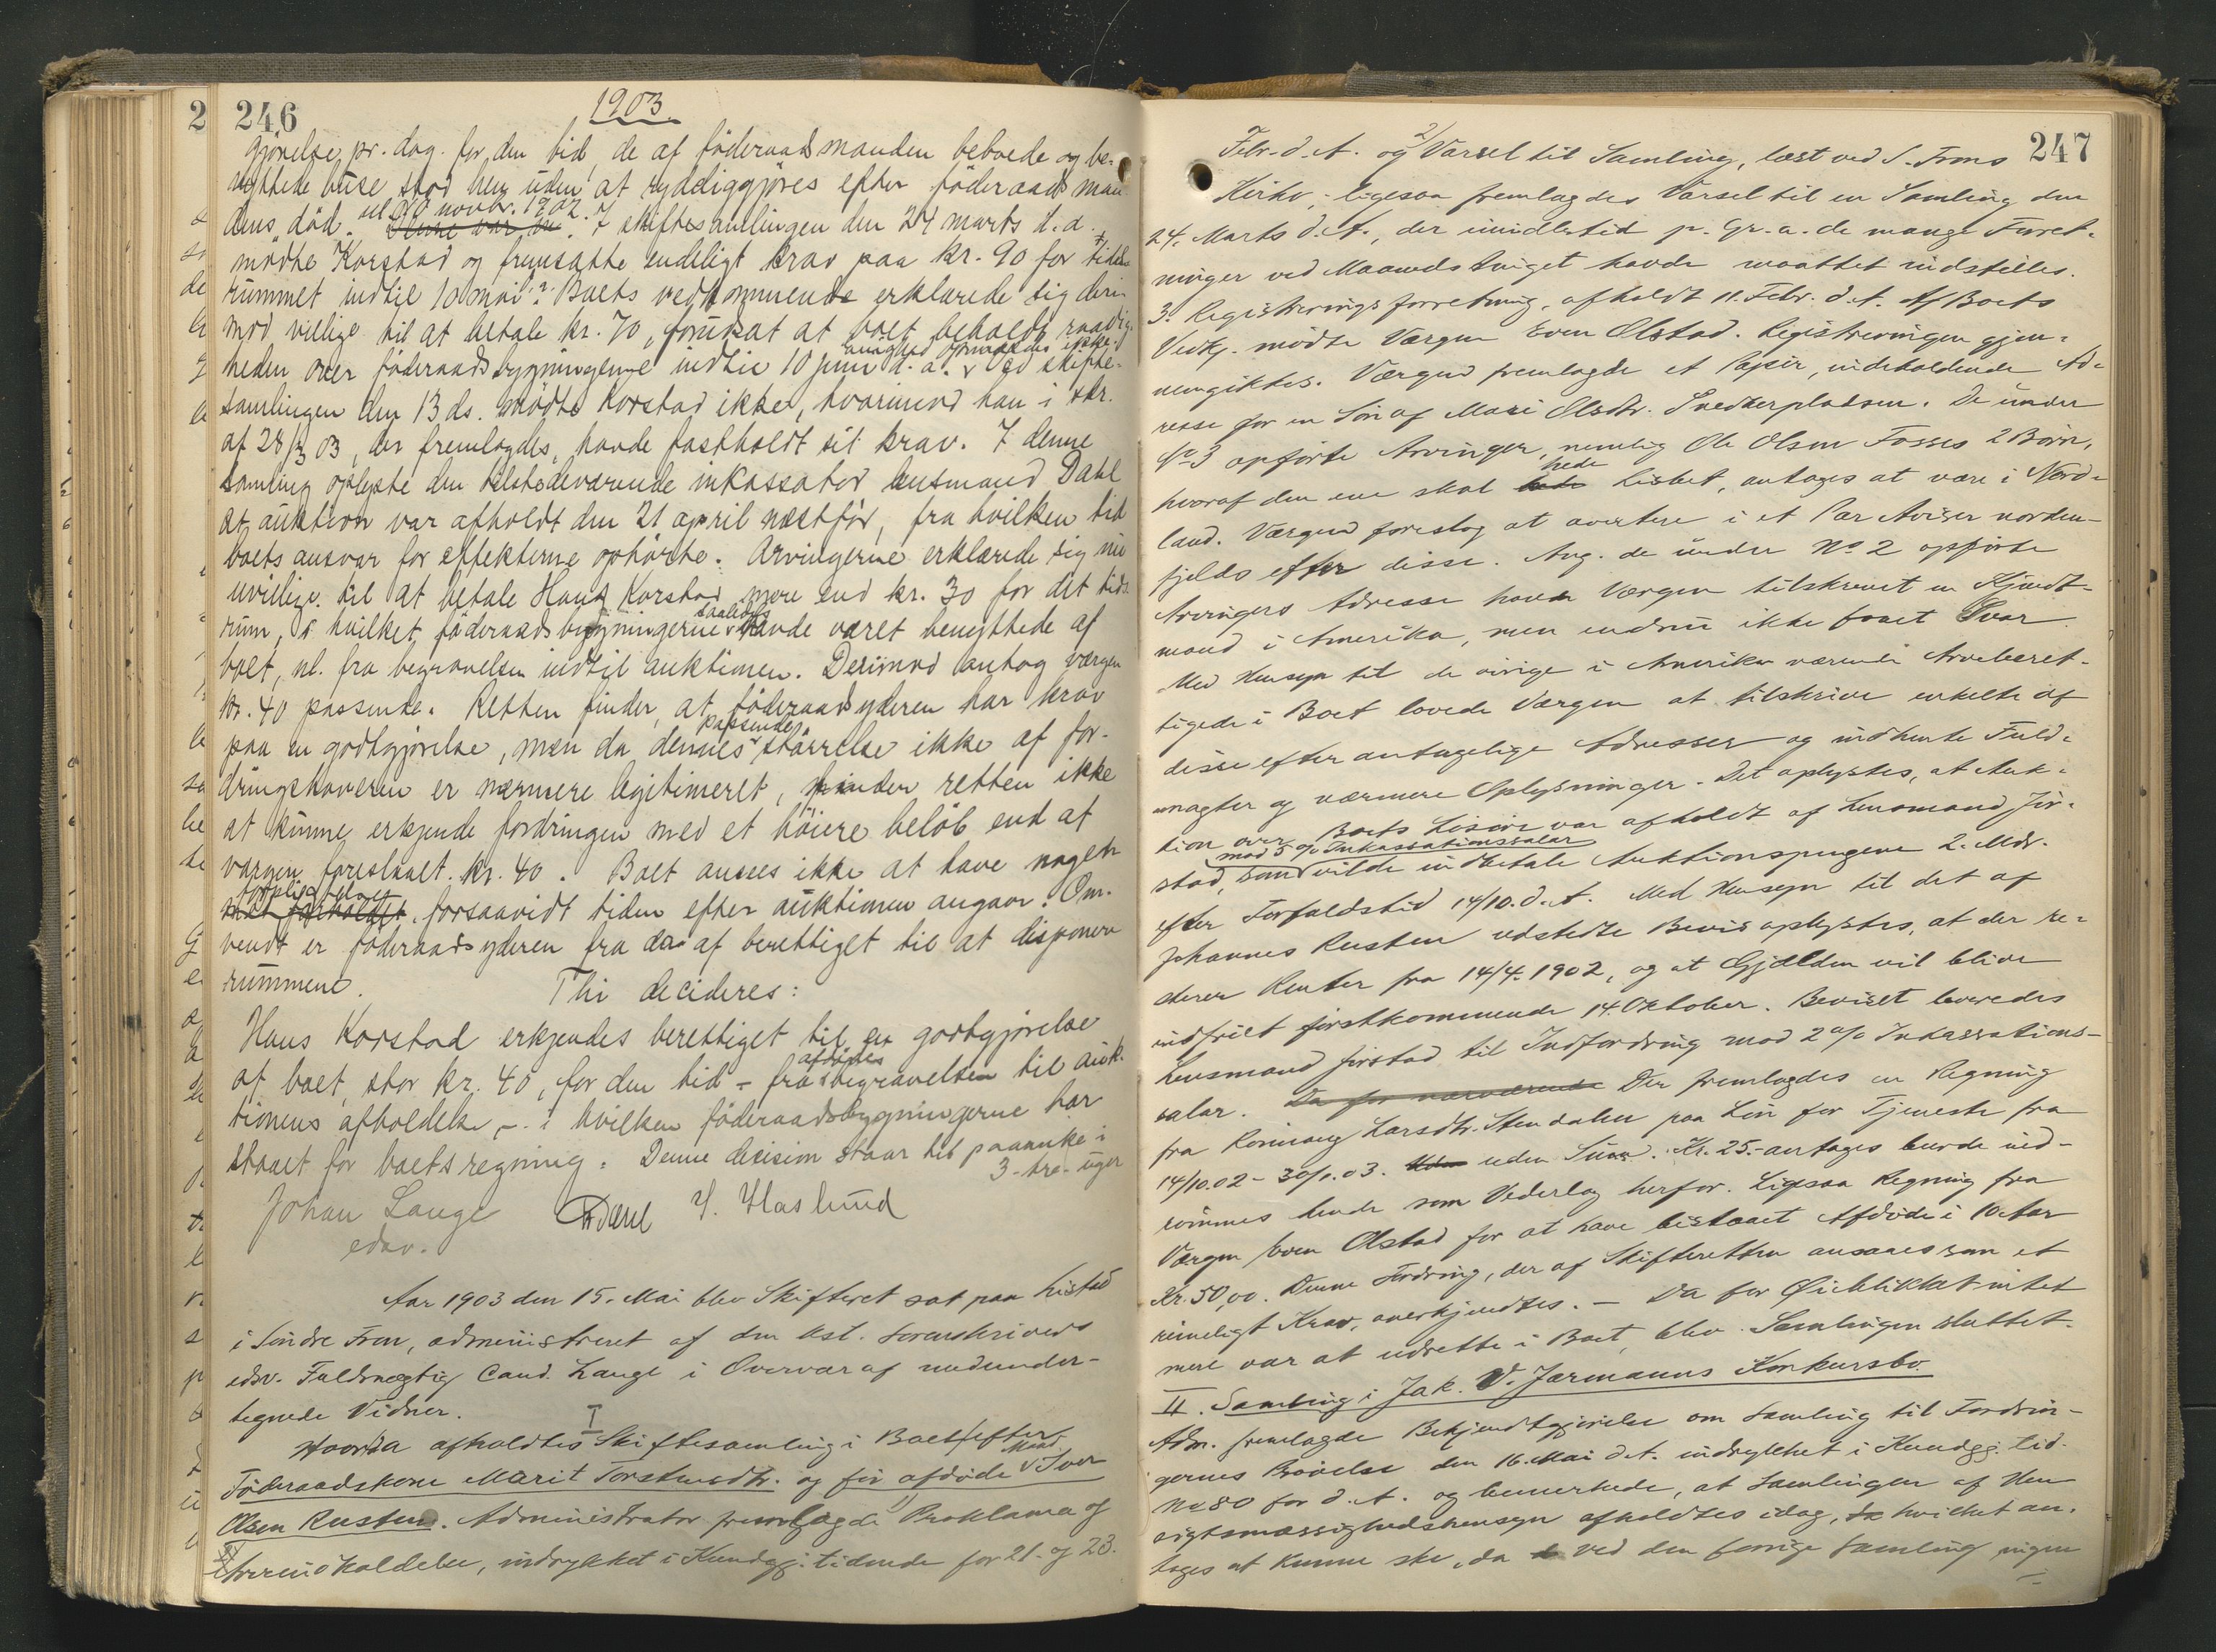 246
1903.
gjörelse pr. dag for den tid, de af föderaadsmanden beboede og be-
nyttede huse stod hen uden at ryddiggjöres efter föderaadsman
dens död. Denne var den 20 novbr. 1902. I skiftesamlingen den 24 marts d.a.
mödte Korstad og fremsatte endeligt krav paa kr. 90 for tids-
rummet indtil 10 mai. Boets vedkommende erklærede sig deri-
mod villige til at betale kr. 70, forudsat at boet beholdt raadig-
heden over föderaadsbygningerne indtil 10 juni d.a. enighed opnaaedes ikke. Ved skifte-
samlingen den 13 ds. mödte Korstad ikke, hvorimod han i skr.
af 28/3 03, der fremlagdes, havde fastholdt sit krav. I denne
samling oplyste den tilstedeværende inkassator lensmand Dahl
at auktion var afholdt den 21 april næstför, fra hvilken tid
boets ansvar for effekterne ophörte. Arvingerne erklærede sig nu
uvillige til at betale Hans Korstad mere end kr. 30 for det tids-
rum, i hvilket föderaadsbygningerne saaledes havde været benyttede af
boet, nl. fra begravelsen indtil auktionen. Derimod antog værgen
kr. 40 passende. Retten finder, at föderaadsyderen har krav
paa en godtgjörelse, men da dennes passende störrelse ikke af for-
dringshaveren er nærmere legitimeret, finder retten ikke
at kunne erkjende fordringen med et höiere belöb end af
værgen foreslaaet kr. 40. Boet ansees ikke at have nogen
forpligtelse forsaavidt tiden efter auktionen angaar. Om-
vendt er föderaadsyderen fra da af berettiget til at disponere
rummene. Thi decideres:
Hans Korstad erkjendes berettiget til en godtgjörelse
af boet, stor kr. 40, for den tid - fra afdödes begravelse til auk-
tionens afholdelse, - i hvilken föderaadsbygningerne har
staaet for boets regning. Denne decision staar til paaanke i
3-tre-uger
Johan Lange Dahl Y. Haslund
edsv.
Aar 1903 den 15. Mai blev Skifteret sat paa Listad
i Söndre Fron, administreret af den kst. Sorenskrivers
edsv. Fuldmægtig Cand. Lange i Overvær af medunder-
tegnede Vidner.
I
Hvorda afholdtes Skiftesamling i Boet efter
Föderaadskone Marit Torstensdtr. og för afdöde Mand Iver
Olsen Rusten. Administrator fremlagde 1) Proklama og
Arveindkaldelse, indrykket i Kundgj. tidende for 21. og 23.
247
Febr. d. A. og 2) Varsel til Samling, læst ved S. Frons
Kirke, - ligesaa fremlagdes Varsel til en Samling den
24. Marts d. A., der imidlertid p. Gr. a. de mange Forret-
ninger ved Maanedstinget havde maattet udstilles.
3. Registreringsforretning, afholdt 11. Febr. d. A. Af Boets
Vedkj. mödte Værgen Even Olstad. Registreringen gjen-
nemgikkes. Værgen fremlagde et Papir, indeholdende Ad-
resse for en Sön af Mari Olsdtr. Snedkerpladsen. De under
No 3 opförte Arvinger, nemlig Ole Olsen Fosses 2 Börn,
hvoraf den ene skal hede Lisbet, antages at være i Nord-
land. Værgen foreslog at avertere i et Par Aviser norden-
fjelds efter disse. Ang. de under No 2 opförte
Arvingers Adresse havde Værgen tilskrevet en Kjendt-
mand i Amerika, men endnu ikke faaet Svar.
Med Hensyn til de övrige i Amerika værende Arveberet-
tigede i Boet lovede Værgen at tilskrive enkelte af
disse efter antagelige Adresser og indhente Fuld-
magter og nærmere Oplysninger. Det oplystes, at Auk-
tion over Boets Lösöre var afholdt af Lensmand Jör-
stad, som mod 5 % Inkassationssalær vilde indbetale Auktionspengene 2 Mdr.
efter Forfaldstid 14/10. d. A. Med Hensyn til det af
Johannes Rusten udstedte Bevis oplystes, at der re-
sterer Renter fra 14/4. 1902, og at Gjælden vil blive
indfriet förstkommende 14. Oktober. Beviset leveredes
Lensmand Jörstad til Indfordring mod 2 % Inkassations-
salær. Da for nærværende Der fremlagdes en Regning
fra Ronnaug Larsdtr. Stendalen paa Lön for Tjeneste fra
14/10.02 - 30/1.03. uden Sum. Kr. 25.- antages burde ind-
römmes hende som Vederlag herfor. Ligesaa Regning fra
Værgen Even Olstad for at have bistaaet Afdöde i 10 Aar
Kr. 50,00. Denne Fordring, der af Skifteretten ansaaes som et
rimeligt Krav, anerkjendtes. - Da for Öieblikket intet
mere var at udrette i Boet, blev Samlingen sluttet.
II. Samling i Jak. V. Jarmanns Konkursbo.
Adm. fremlagde Bekjendtgjörelse om Samling til Fordrin-
gernes Prövelse den 16. Mai d. A. indrykket i Kundgj. tid.
No 80 for d. A. og bemerkede, at Samlingen af Hen-
sigtsmæssighedshensyn afholdtes idag, hvilket an-
tages at kunne ske, da ved den forrige Samling ingen